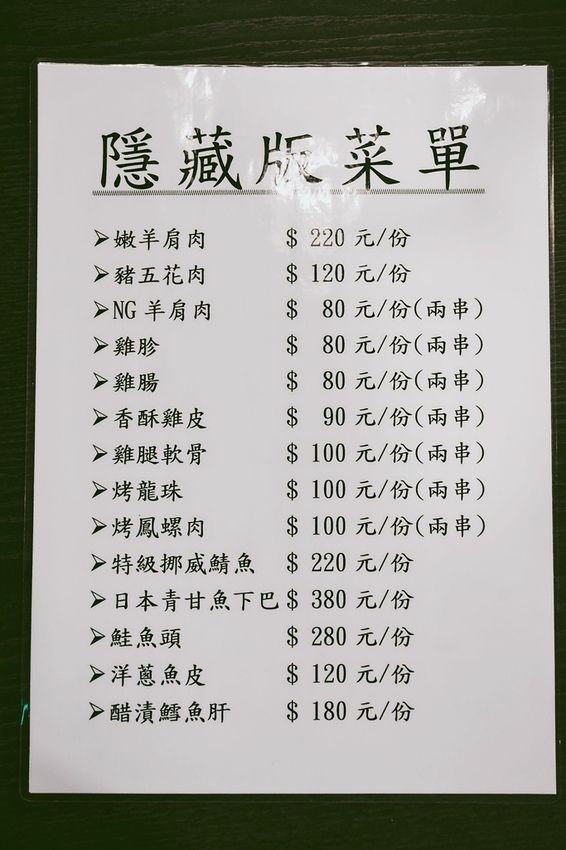 隱藏版菜單
➢嫩羊肩肉 $ 220 元/份
➢豬五花肉 $ 120 元/份
➢NG 羊肩肉 $ 80 元/份(兩串)
➢雞胗 $ 80 元/份(兩串)
➢雞腸 $ 80 元/份(兩串)
➢香酥雞皮 $ 90 元/份(兩串)
➢雞腿軟骨 $ 100 元/份(兩串)
➢烤龍珠 $ 100 元/份(兩串)
➢烤鳳螺肉 $ 100 元/份(兩串)
➢特級挪威鯖魚 $ 220 元/份
➢日本青甘魚下巴 $ 380 元/份
➢鮭魚頭 $ 280 元/份
➢洋蔥魚皮 $ 120 元/份
➢醋漬鱈魚肝 $ 180 元/份